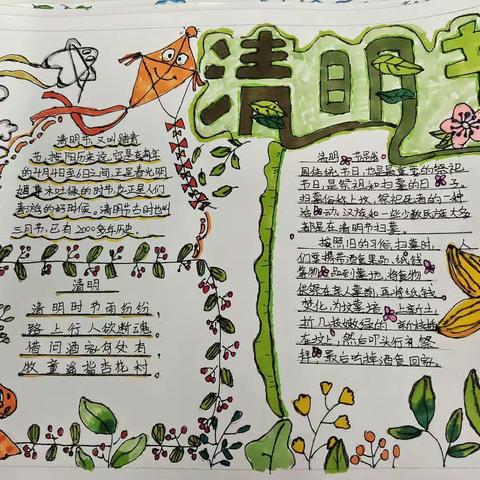 清明节
清明节，又叫踏青
节，按阳历来说，它是在每年
的4月4日至6日之间，正是春光明
媚草木吐绿的时节，也正是人们
春游的好时候。清明节古时也叫
三月节，已有2000多年历史。
清明
清明时节雨纷纷，
路上行人欲断魂。
借问酒家何处有，
牧童遥指杏花村。
清明节是我
国传统节日，也是最重要的祭祀
节日，是祭祖和扫墓的日子。
扫墓俗称上坟，祭祀死者的一种
活动。汉族和一些少数民族大多
都是在清明节扫墓。
按照旧的习俗，扫墓时，人
们要携带酒食果品，纸钱
等物品到墓地，将食物
供祭在亲人墓前，再将纸钱
焚化，为坟墓培上新土，
折几枝嫩绿的新枝插
在坟上，然后叩头行礼祭
拜，最后吃掉酒食回家。